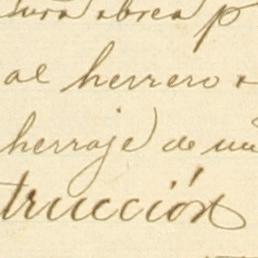 obrea p
al herrero
herraje de un
trucción